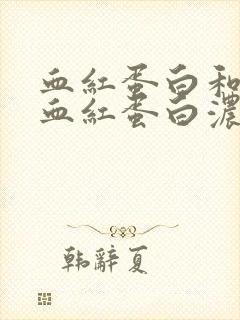 血紅蛋白和
血紅蛋白濃
韩辭夏